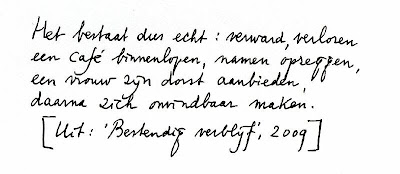 Het bestaat dus echt: verward, verloren
een café binnenlopen, namen opzeggen,
een vrouw zijn dorst aanbieden,
daarna zich onvindbaar maken.
[Uit: 'Bestendig verblijf', 2009]